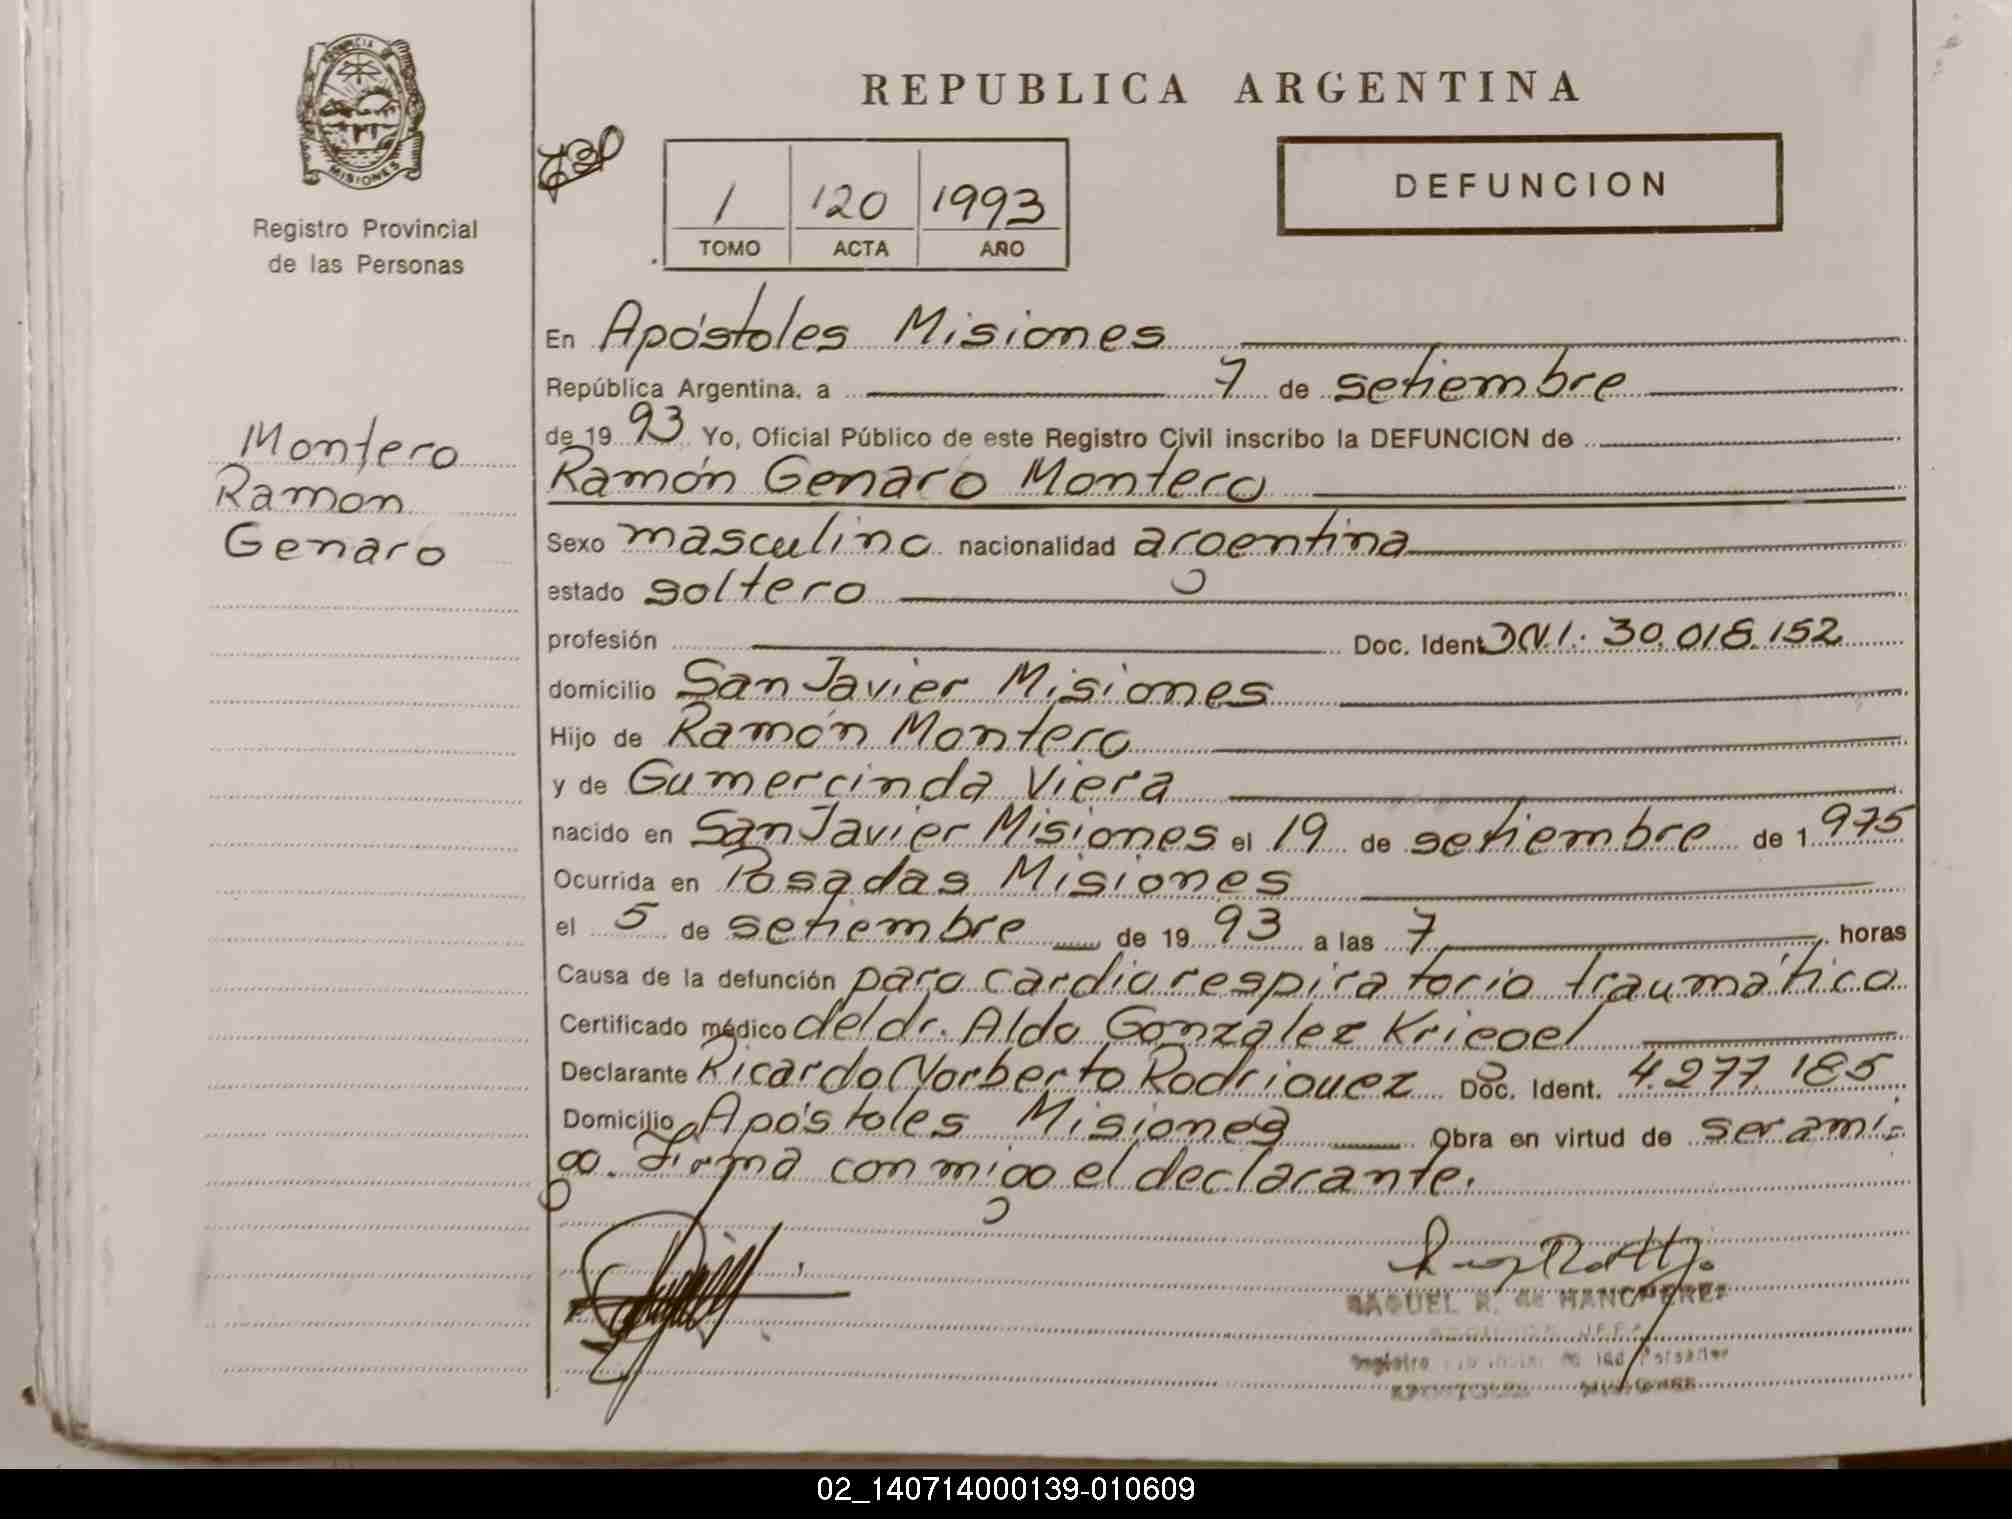 PROVINCIA DE
MISIONES
Registro Provincial
de las Personas
REPUBLICA ARGENTINA
DEFUNCION
1 120 1993
TOMO ACTA AÑO
En Apóstoles Misiones
República Argentina, a 7 de setiembre
de 19 93 Yo, Oficial Público de este Registro Civil inscribo la DEFUNCION de
Montero
Ramon
Genaro
Ramón Genaro Montero
Sexo masculino nacionalidad argentina
estado soltero
profesión Doc. Ident D.N.I.: 30.018.152
domicilio San Javier Misiones
Hijo de Ramón Montero
y de Gumercinda Viera
nacido en San Javier Misiones el 19 de setiembre de 1.975
Ocurrida en Posadas Misiones
el 5 de setiembre de 19 93 a las 7 horas
Causa de la defunción paro cardiorespiratorio traumático
Certificado médico del dr. Aldo Gonzalez Kriegel
Declarante Ricardo Norberto Rodriguez Doc. Ident. 4.277.185
Domicilio Apóstoles Misiones Obra en virtud de ser ami-
go. Firma conmigo el declarante.
RAQUEL R. de
JEFA
Registro de las Personas
APOSTOLES MISIONES
02_140714000139-010609